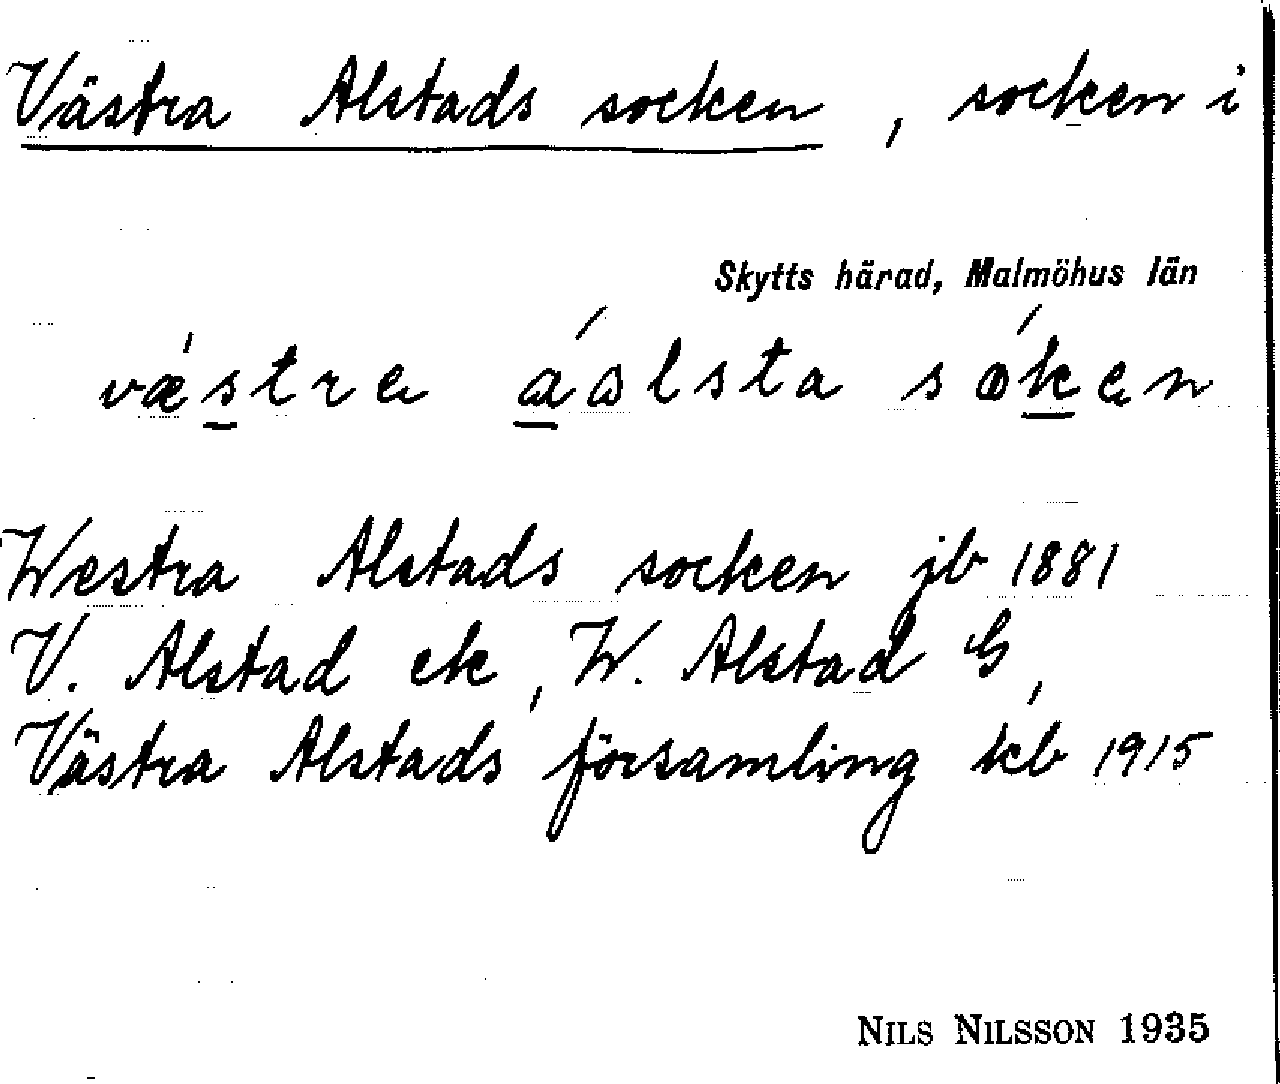 Västra Alstads socken, socken i
Skytts härad, Malmöhus län
vǽstre áalsta sóken
Westra Alstads socken jb 1881
V. Alstad ek, W. Alstad G,
Västra Alstads församling kb 1915
NILS NILSSON 1935